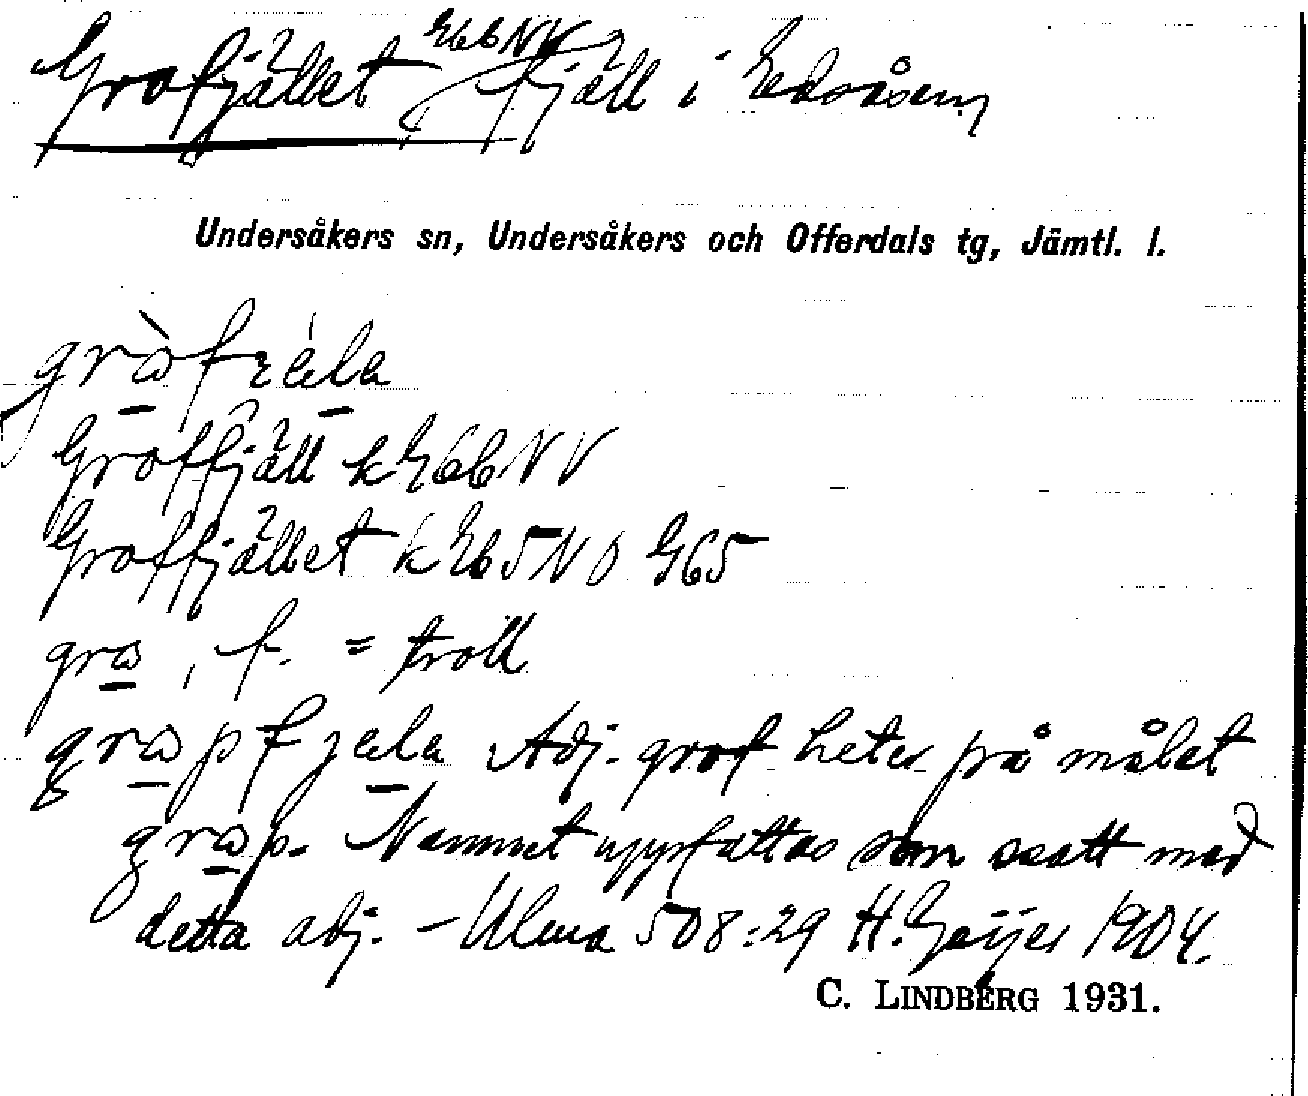 E66NV
Grofjället, fjäll i Edsåsen
Undersåkers sn, Undersåkers och Offerdals tg, Jämtl. l.
Groffjäll k E66NV
Groffjället k E65NO G65
gra, f. = troll
grapfjæla Adj. grof heter på målet
grap. Namnet uppfattas som ssatt med
detta adj. – Ulma 508:29 H. Geijer 1904.
C. LINDBERG 1931.